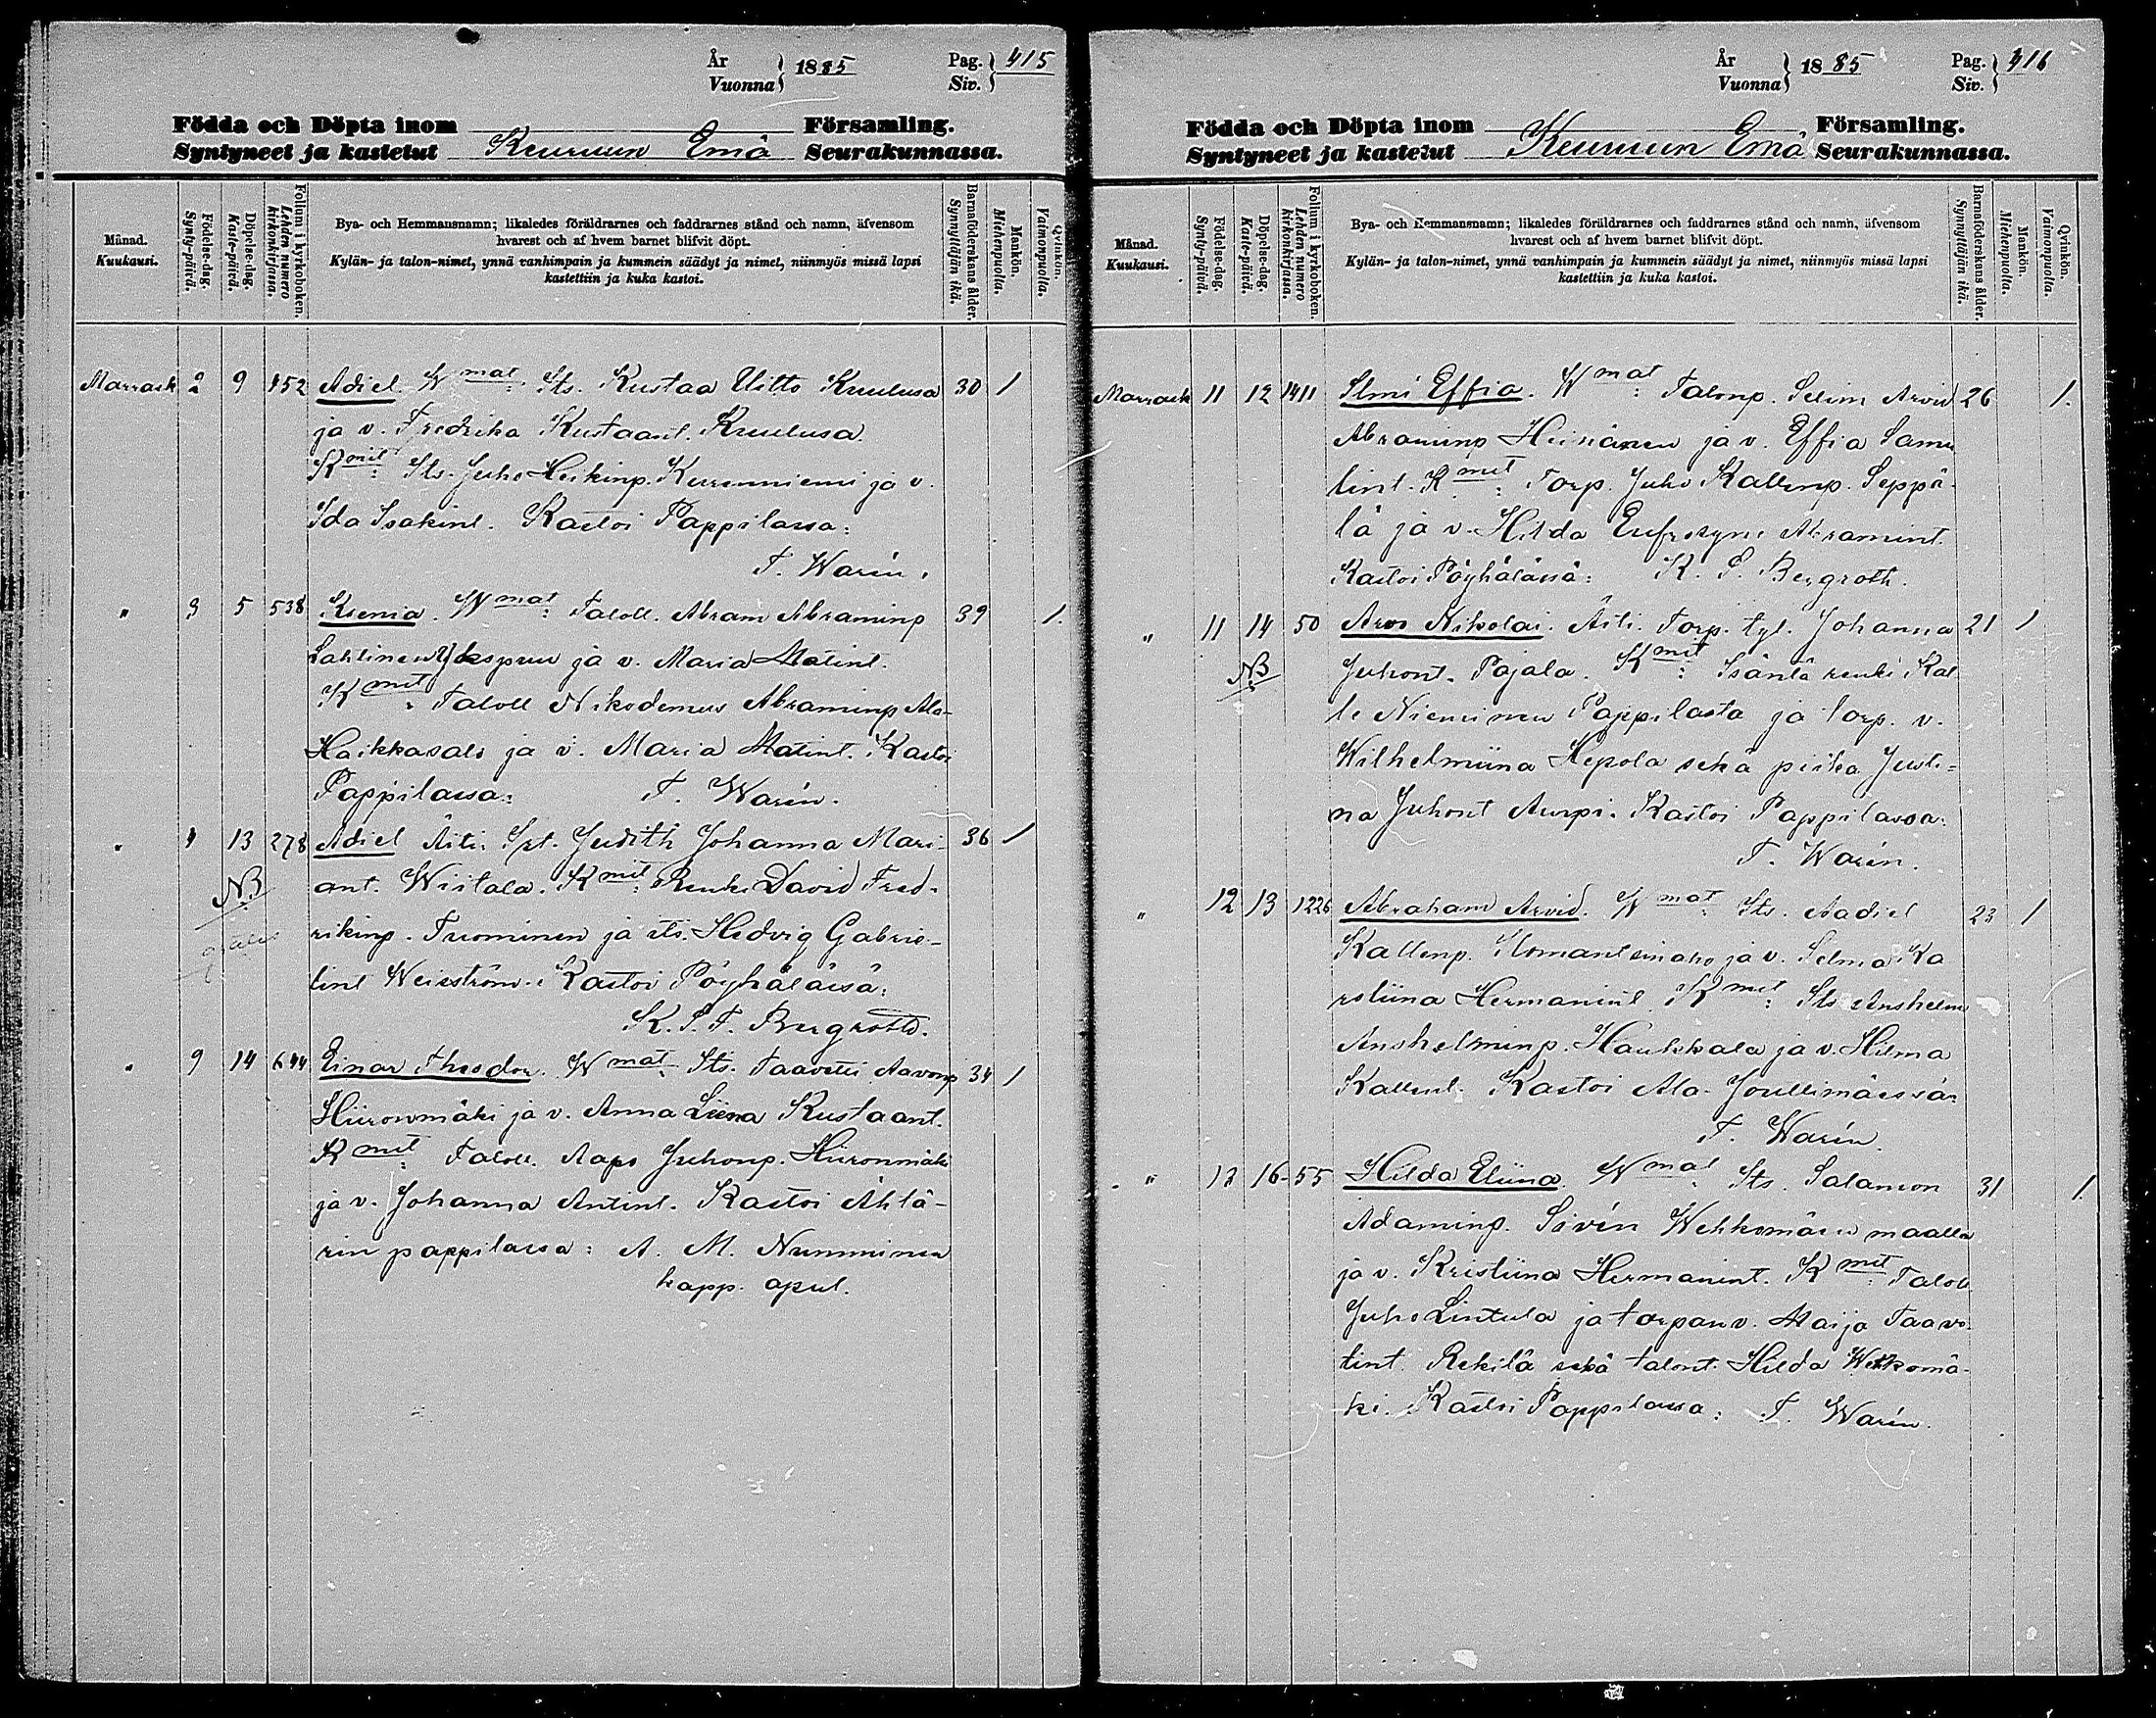 År Vuonna 1885 Pag. Siv. 415
Födda och Döpta inom Församling.
Syntyneet ja kastetut Keuruun Emä Seurakunnassa.
Månad. Kuukausi.
Födelse-dag. Synty-päivä.
Döpelse-dag. Kaste-päivä.
Folium i kyrkoboken. Lehden numero kirkonkirjassa.
Bya- och Hemmansnamn; likaledes föräldrarnes och faddrarnes stånd och namn, äfvensom
hvarest och af hvem barnet blifvit döpt.
Kylän- ja talon-nimet, ynnä vanhimpain ja kummein säädyt ja nimet, niinmyös missä lapsi
kastettiin ja kuka kastoi.
Barnaföderskans ålder. Synnyttäjän ikä.
Mankön. Miehenpuolia.
Qvinkön. Vaimonpuolia.
Marrask 2 9 452 Adiel. Wmat: Its. Kustaa Uitto Kuulusa 30 1
ja v. Fredrika Kustaant. Kuulusa.
Kmit: Its. Juho Heikinp. Kurenniemi ja v.
Ida Isakint. Kastoi Pappilassa:
T. Warén.
" 3 5 538 Ksenia. Wmat: Taloll. Abram Abraminp 39 1.
Lahtinen ja v. Maria Matint.
Kmit: Taloll Nikodemus Abraminp Ala-
Haikkasalo ja v. Maria Matint. Kastoi
Pappilassa: T. Warén.
" 4 13 278 Adiel Äiti: Judith Johanna Mari- 36 1
NB ant. Wiitala. Kmit: Renki David Fred-
rikinp. Tuominen ja its. Hedvig Gabrie-
lint Weisström. Kastoi Pöyhölässä:
K. S. T. Bergroth.
" 9 14 644 Einar Theodor. Wmat: Its. Taavetti Aavonp 34 1
Hiironmäki ja v. Anna Liena Kustaant.
Kmit: Taloll. Aapo Juhonp. Hiironmäki
ja v. Johanna Antint. Kastoi Ähtä-
rin pappilassa: A. M. Numminen
kapp. apul.
År Vuonna 1885 Pag. Siv. 416
Födda och Döpta inom Församling.
Syntyneet ja kastetut Keuruun Emä Seurakunnassa.
Månad. Kuukausi.
Födelse-dag. Synty-päivä.
Döpelse-dag. Kaste-päivä.
Folium i kyrkoboken. Lehden numero kirkonkirjassa.
Bya- och Hemmansnamn; likaledes föräldrarnes och faddrarnes stånd och namn, äfvensom
hvarest och af hvem barnet blifvit döpt.
Kylän- ja talon-nimet, ynnä vanhimpain ja kummein säädyt ja nimet, niinmyös missä lapsi
kastettiin ja kuka kastoi.
Barnaföderskans ålder. Synnyttäjän ikä.
Mankön. Miehenpuolia.
Qvinkön. Vaimonpuolia.
Marrask 11 12 1411 Ilmi Effia. Wmat: Talonp. Selim Arvid 26 1.
Abraminp Heinänen ja v. Effia Samu
lint. Kmit: Torp. Juho Kallenp. Seppä-
lä ja v. Hilda Eufrosyne Abramint.
Kastoi Pöyhölässä: K. S. Bergroth.
" 11 14 50 Arvo Nikolai. Äiti: Torp. tyt. Johanna 21 1
NB Juhont. Pajala. Kmit: Isäntä renki Kal
le Nieminen Pappilasta ja torp. v.
Wilhelmiina Hepola sekä piika Justi-
na Juhont Aurpi. Kastoi Pappilassa:
T. Warén.
" 12 13 1226 Abraham Arvid. Wmat: Its. Aadiel 23 1
Kallenp. ja v. Selma Ka
roliina Hermanint. Kmit: Its Anshelm
Anshelminp. Haukkala ja v. Hilma
Kallent. Kastoi Ala-
T. Warén.
" 12 16 55 Hilda Eliina. Wmat: Its. Salamon 31 1
Adaminp. Sivén Wehkomäen maalla
ja v. Kristiina Hermanint. Kmit: Taloll
Juho Lintula ja torpan v. Maija Taave-
tint. Rekilä sekä talont. Hilda Wehkomä-
ki. Kastoi Pappilassa: T. Warén.